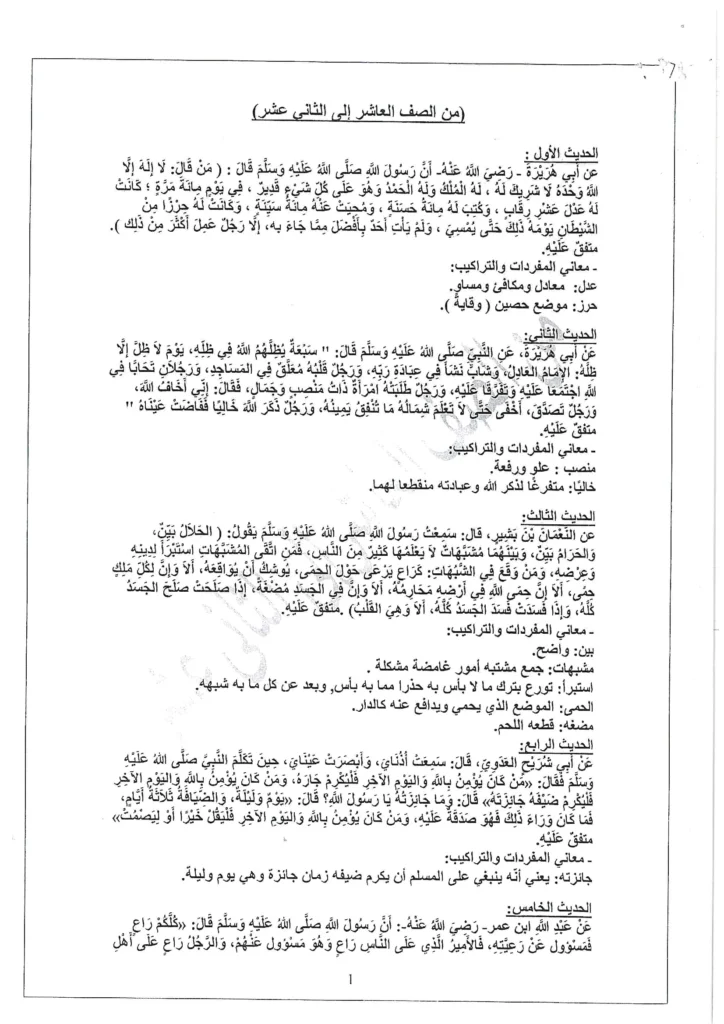 (من الصف العاشر إلى الثاني عشر)
الحديث الأول :
عن أَبِي هُرَيْرَةَ - رَضِيَ اللَّهُ عَنْهُ- أَنَّ رَسُولَ اللَّهِ صَلَّى اللَّهُ عَلَيْهِ وَسَلَّمَ قَالَ : ( مَنْ قَالَ: لَا إِلَهَ إِلَّا
اللَّهُ وَحْدَهُ لَا شَرِيكَ لَهُ ، لَهُ الْمُلْكُ وَلَهُ الْحَمْدُ وَهُوَ عَلَى كُلِّ شَيْءٍ قَدِيرٌ ، فِي يَوْمٍ مِائَةَ مَرَّةٍ ؛ كَانَتْ
لَهُ عَدْلَ عَشْرِ رِقَابٍ ، وَكُتِبَ لَهُ مِائَةُ حَسَنَةٍ ، وَمُحِيَتْ عَنْهُ مِائَةُ سَيِّئَةٍ ، وَكَانَتْ لَهُ حِرْزًا مِنْ
الشَّيْطَانِ يَوْمَهُ ذَلِكَ حَتَّى يُمْسِيَ ، وَلَمْ يَأْتِ أَحَدٌ بِأَفْضَلَ مِمَّا جَاءَ بِهِ، إِلَّا رَجُلٌ عَمِلَ أَكْثَرَ مِنْ ذَلِكَ ).
متفقٌ عَلَيْهِ.
- معاني المفردات والتراكيب:
عدل: معادل ومكافئ ومساو.
حرز: موضع حصين ( وقاية ).
الحديث الثاني:
عَنْ أَبِي هُرَيْرَةَ، عَنِ النَّبِيِّ صَلَّى اللهُ عَلَيْهِ وَسَلَّمَ قَالَ: " سَبْعَةٌ يُظِلُّهُمُ اللَّهُ فِي ظِلِّهِ، يَوْمَ لَا ظِلَّ إِلَّا
ظِلُّهُ: الإِمَامُ العَادِلُ، وَشَابٌّ نَشَأَ فِي عِبَادَةِ رَبِّهِ، وَرَجُلٌ قَلْبُهُ مُعَلَّقٌ فِي المَسَاجِدِ، وَرَجُلاَنِ تَحَابَّا فِي
اللَّهِ اجْتَمَعَا عَلَيْهِ وَتَفَرَّقَا عَلَيْهِ، وَرَجُلٌ طَلَبَتْهُ امْرَأَةٌ ذَاتُ مَنْصِبٍ وَجَمَالٍ، فَقَالَ: إِنِّي أَخَافُ اللَّهَ،
وَرَجُلٌ تَصَدَّقَ، أَخْفَى حَتَّى لاَ تَعْلَمَ شِمَالُهُ مَا تُنْفِقُ يَمِينُهُ، وَرَجُلٌ ذَكَرَ اللَّهَ خَالِيًا فَفَاضَتْ عَيْنَاهُ "
متفقٌ عَلَيْهِ.
- معاني المفردات والتراكيب:
منصب : علو ورفعة.
خاليًا: متفرغًا لذكر الله وعبادته منقطعا لهما.
الحديث الثالث:
عن النُّعْمَانَ بْنَ بَشِيرٍ، قال: سَمِعْتُ رَسُولَ اللَّهِ صَلَّى اللهُ عَلَيْهِ وَسَلَّمَ يَقُولُ: ( الحَلاَلُ بَيِّنٌ،
وَالحَرَامُ بَيِّنٌ، وَبَيْنَهُمَا مُشَبَّهَاتٌ لاَ يَعْلَمُهَا كَثِيرٌ مِنَ النَّاسِ، فَمَنِ اتَّقَى المُشَبَّهَاتِ اسْتَبْرَأَ لِدِينِهِ
وَعِرْضِهِ، وَمَنْ وَقَعَ فِي الشُّبُهَاتِ: كَرَاعٍ يَرْعَى حَوْلَ الحِمَى، يُوشِكُ أَنْ يُوَاقِعَهُ، أَلاَ وَإِنَّ لِكُلِّ مَلِكٍ
حِمًى، أَلاَ إِنَّ حِمَى اللَّهِ فِي أَرْضِهِ مَحَارِمُهُ، أَلاَ وَإِنَّ فِي الجَسَدِ مُضْغَةً، إِذَا صَلَحَتْ صَلَحَ الجَسَدُ
كُلُّهُ، وَإِذَا فَسَدَتْ فَسَدَ الجَسَدُ كُلُّهُ، أَلاَ وَهِيَ القَلْبُ) .متفقٌ عَلَيْهِ.
- معاني المفردات والتراكيب:
بين: واضح.
مشبهات: جمع مشتبه أمور غامضة مشكلة .
استبرأ: تورع بترك ما لا بأس به حذرا مما به بأس, وبعد عن كل ما به شبهه.
الحمى: الموضع الذي يحمي ويدافع عنه كالدار.
مضغه: قطعه اللحم.
الحديث الرابع:
عَنْ أَبِي شُرَيْحٍ العَدَوِيِّ، قَالَ: سَمِعَتْ أُذُنَايَ، وَأَبْصَرَتْ عَيْنَايَ، حِينَ تَكَلَّمَ النَّبِيُّ صَلَّى اللهُ عَلَيْهِ
وَسَلَّمَ فَقَالَ: «مَنْ كَانَ يُؤْمِنُ بِاللَّهِ وَاليَوْمِ الآخِرِ فَلْيُكْرِمْ جَارَهُ، وَمَنْ كَانَ يُؤْمِنُ بِاللَّهِ وَاليَوْمِ الآخِرِ
فَلْيُكْرِمْ ضَيْفَهُ جَائِزَتَهُ» قَالَ: وَمَا جَائِزَتُهُ يَا رَسُولَ اللَّهِ؟ قَالَ: «يَوْمٌ وَلَيْلَةٌ، وَالضِّيَافَةُ ثَلاَثَةُ أَيَّامٍ،
فَمَا كَانَ وَرَاءَ ذَلِكَ فَهُوَ صَدَقَةٌ عَلَيْهِ، وَمَنْ كَانَ يُؤْمِنُ بِاللَّهِ وَاليَوْمِ الآخِرِ فَلْيَقُلْ خَيْرًا أَوْ لِيَصْمُتْ»
متفقٌ عَلَيْهِ.
- معاني المفردات والتراكيب:
جائزته: يعني أنّه ينبغي على المسلم أن يكرم ضيفه زمان جائزة وهي يوم وليلة.
الحديث الخامس:
عَنْ عَبْدِ اللَّهِ ابن عمر- رَضِيَ اللَّهُ عَنْهُ-: أَنَّ رَسُولَ اللَّهِ صَلَّى اللهُ عَلَيْهِ وَسَلَّمَ قَالَ: «كُلُّكُمْ رَاعٍ
فَمَسْؤُولٌ عَنْ رَعِيَّتِهِ، فَالأَمِيرُ الَّذِي عَلَى النَّاسِ رَاعٍ وَهُوَ مَسْؤُولٌ عَنْهُمْ، وَالرَّجُلُ رَاعٍ عَلَى أَهْلِ
1